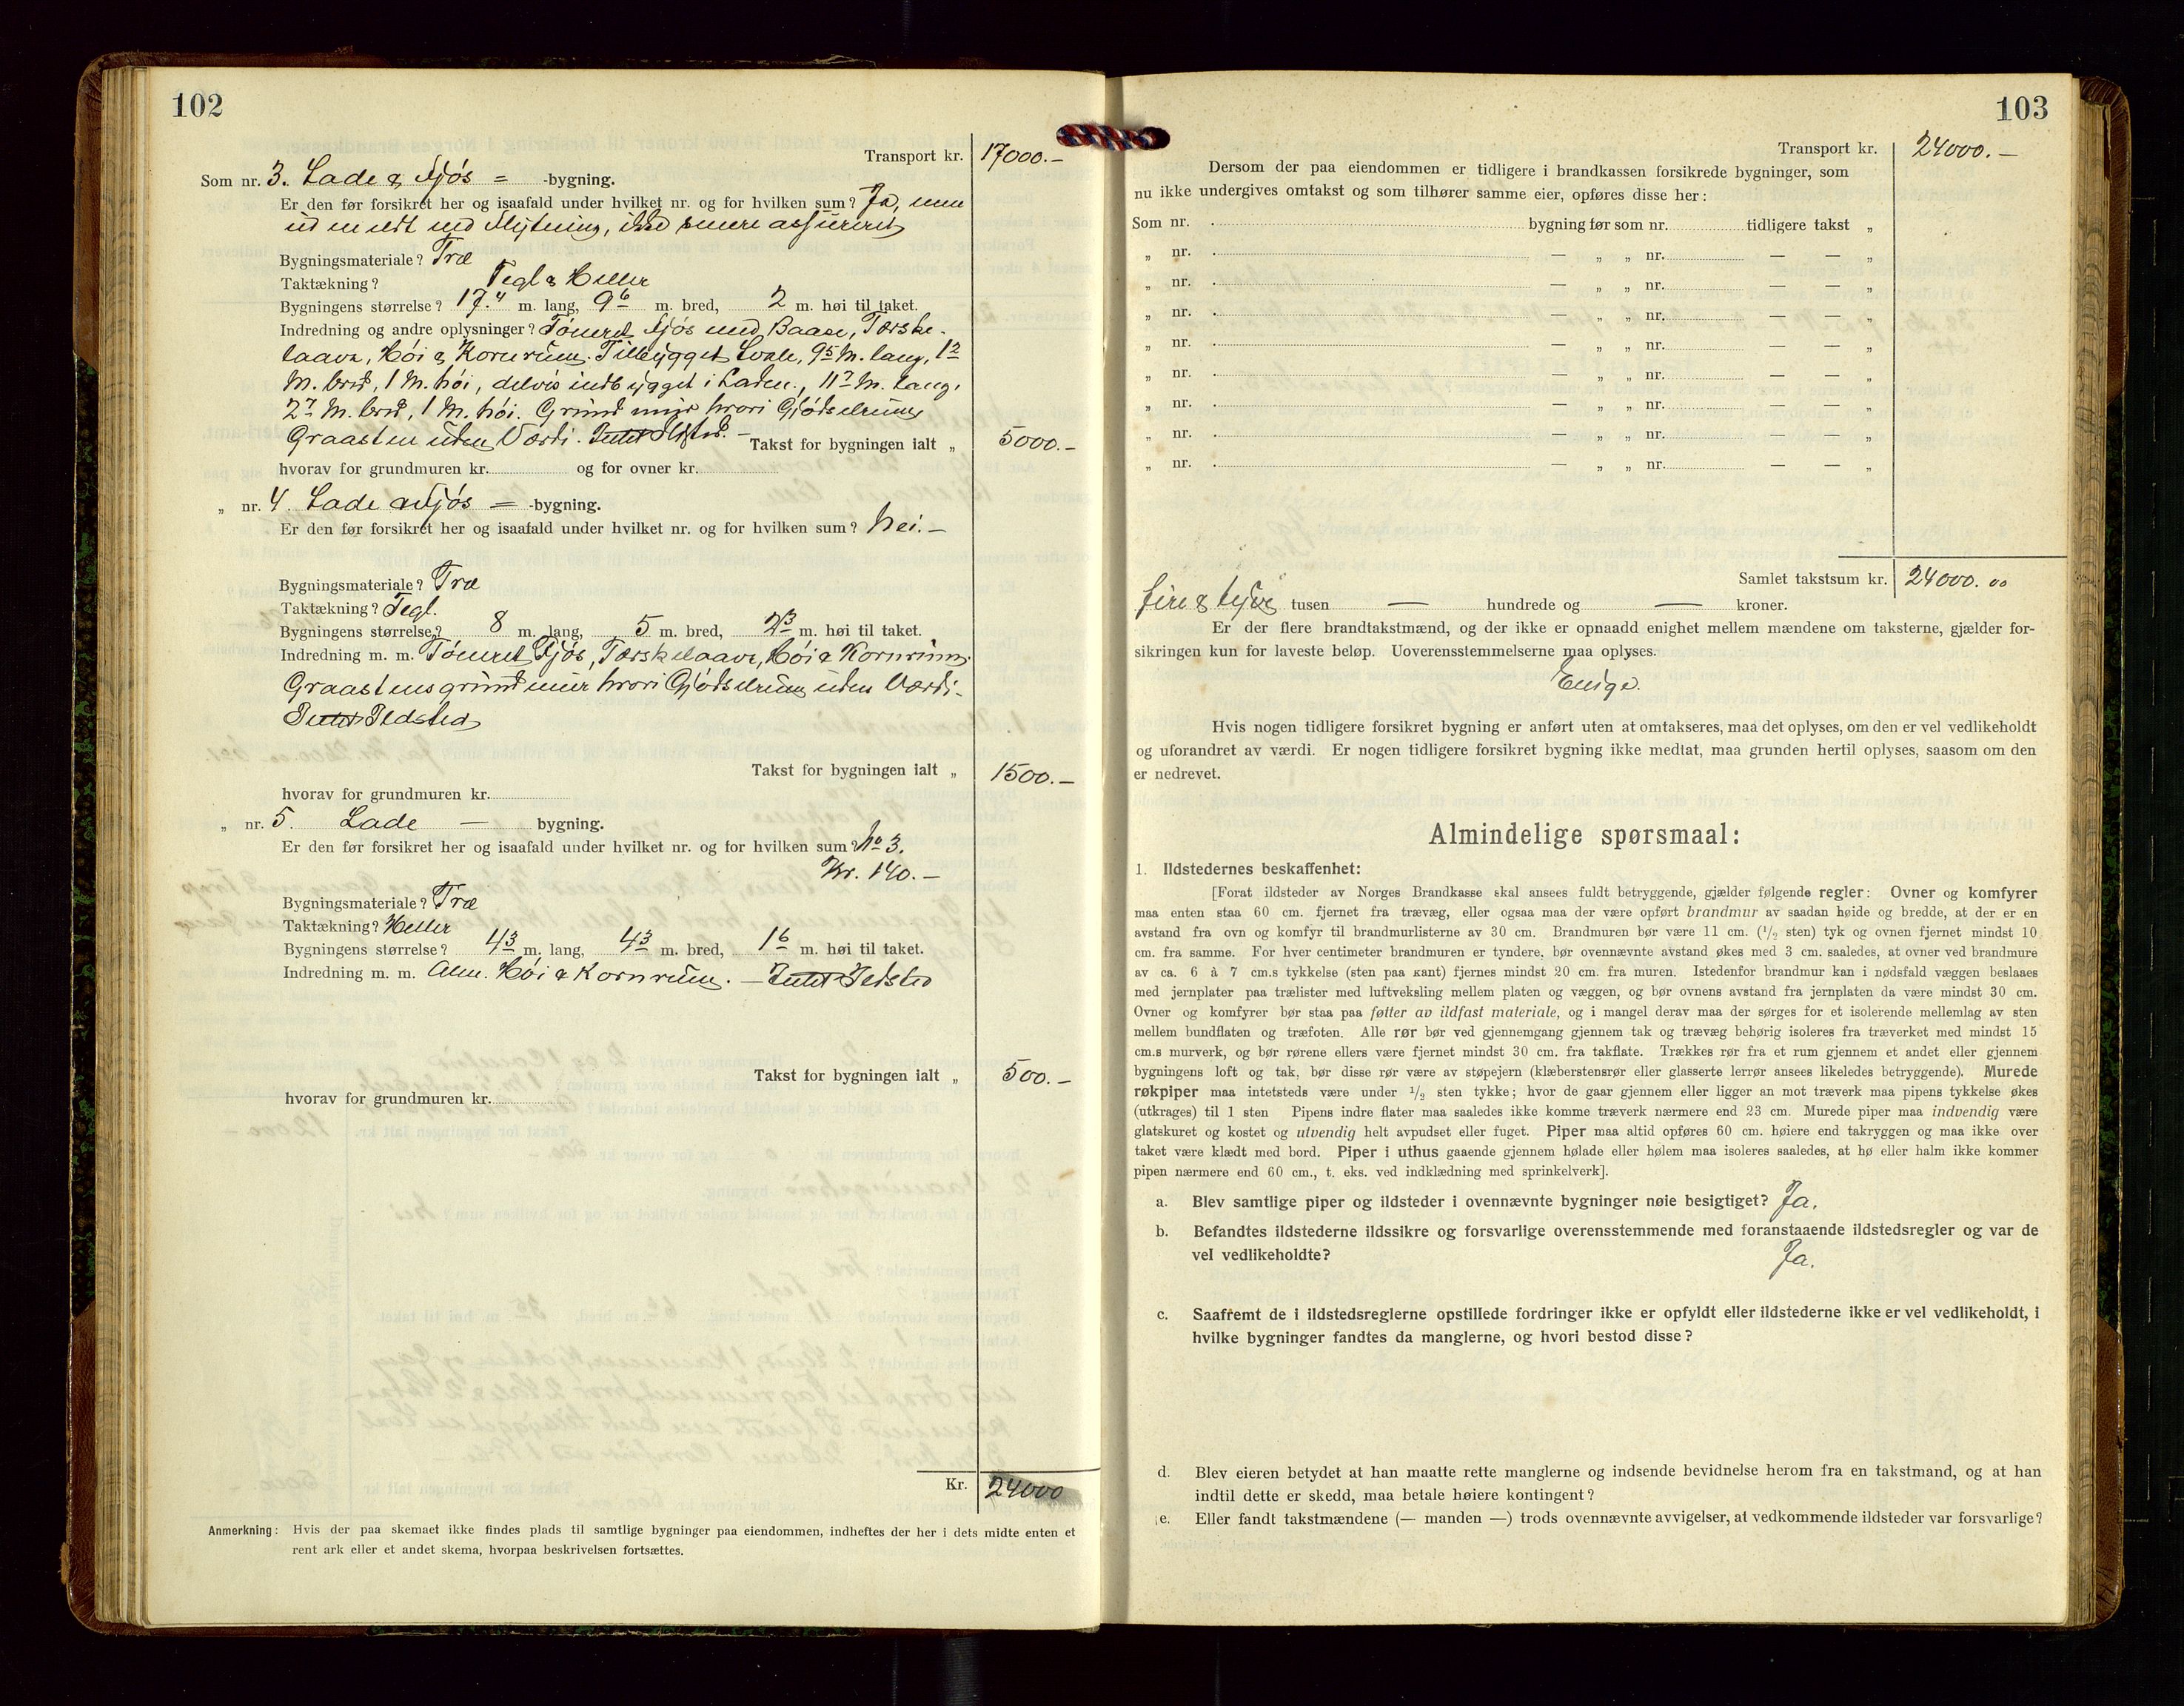 102
Transport kr. 17000.—
Som nr. 3. Lade & Fjös = -bygning.
Er den før forsikret her og isaafald under hvilket nr. og for hvilken sum? Ja, men
udmeldt ved flytning, ikke senere assureret
Bygningsmateriale? Træ
Taktækning? Tegl & Heller
Bygningens størrelse? 17.4 m. lang, 96 m. bred, 2 m. høi til taket.
Indredning og andre oplysninger? Tömret Fjös med Baase, Tærske-
laave, Höi & Kornrum. Tilbygget Svale, 95 M. lang, 12
M. bred, 1 M. höi, delvis indbygget i Laden., 117 M. lang,
27 M. bred, 1 M. höi. Grundmur hvori Gjödselrum
Graasten uden Værdi. Intet Ildsted. —
Takst for bygningen ialt „ 5000.—
hvorav for grundmuren kr. og for ovner kr.
„ nr. 4. Lade & Fjös = -bygning.
Er den før forsikret her og isaafald under hvilket nr. og for hvilken sum? Nei.—
Bygningsmateriale? Træ
Taktækning? Tegl.
Bygningens størrelse? 8 m. lang, 5 m. bred, 23 m. høi til taket.
Indredning m. m. Tömret Fjös, Tærskelaave, Höi & Kornrum.
Graastensgrundmur hvori Gjödselrum uden Værdi.
Intet Ildsted
Takst for bygningen ialt „ 1500.—
hvorav for grundmuren kr.
„ nr. 5. Lade — bygning.
Er den før forsikret her og isaafald under hvilket nr. og for hvilken sum? No 3.
Kr. 140.—
Bygningsmateriale? Træ
Taktækning? Heller
Bygningens størrelse? 43 m. lang, 43 m. bred, 16 m. høi til taket.
Indredning m. m. Alm. Höi & Kornrum. — Intet Ildsted
Takst for bygningen ialt „ 500.—
hvorav for grundmuren kr.
Kr. 24000
Anmerkning: Hvis der paa skemaet ikke findes plads til samtlige bygninger paa eiendommen, indheftes der her i dets midte enten et
rent ark eller et andet skema, hvorpaa beskrivelsen fortsættes.
103
Transport kr. 24000.—
Dersom der paa eiendommen er tidligere i brandkassen forsikrede bygninger, som
nu ikke undergives omtakst og som tilhører samme eier, opføres disse her:
Som nr. bygning før som nr. tidligere takst „
„ nr. — „ „ nr. — — „
„ nr. — „ „ nr. — — „
„ nr. — „ „ nr. — — „
„ nr. — „ „ nr. — — „
„ nr. — „ „ nr. — — „
„ nr. — „ „ nr. — — „
„ nr. — „ „ nr. — — „
„ nr. — „ „ nr. — — „
Samlet takstsum kr. 24000. 00
fire & tyve tusen — hundrede og — kroner.
Er der flere brandtakstmænd, og der ikke er opnaadd enighet mellem mændene om taksterne, gjælder for-
sikringen kun for laveste beløp. Uoverensstemmelserne maa oplyses.
Enige.
Hvis nogen tidligere forsikret bygning er anført uten at omtakseres, maa det oplyses, om den er vel vedlikeholdt
og uforandret av værdi. Er nogen tidligere forsikret bygning ikke medtat, maa grunden hertil oplyses, saasom om den
er nedrevet.
Almindelige spørsmaal:
1. Ildstedernes beskaffenhet:
[Forat ildsteder av Norges Brandkasse skal ansees fuldt betryggende, gjælder følgende regler: Ovner og komfyrer
maa enten staa 60 cm. fjernet fra trævæg, eller ogsaa maa der være opført brandmur av saadan høide og bredde, at der er en
avstand fra ovn og komfyr til brandmurlisterne av 30 cm. Brandmuren bør være 11 cm. (1/2 sten) tyk og ovnen fjernet mindst 10
cm. fra samme. For hver centimeter brandmuren er tyndere, bør ovennævnte avstand økes med 3 cm. saaledes, at ovner ved brandmure
av ca. 6 à 7 cm.s tykkelse (sten paa kant) fjernes mindst 20 cm. fra muren. Istedenfor brandmur kan i nødsfald væggen beslaaes
med jernplater paa trælister med luftveksling mellem platen og væggen, og bør ovnens avstand fra jernplaten da være mindst 30 cm.
Ovner og komfyrer bør staa paa føtter av ildfast materiale, og i mangel derav maa der sørges for et isolerende mellemlag av sten
mellem bundflaten og træfoten. Alle rør bør ved gjennemgang gjennem tak og trævæg behørig isoleres fra træverket med mindst 15
cm.s murverk, og bør rørene ellers være fjernet mindst 30 cm. fra takflate. Trækkes rør fra et rum gjennem et andet eller gjennem
bygningens loft og tak, bør disse rør være av støpejern (klæberstensrør eller glasserte lerrør ansees likeledes betryggende). Murede
røkpiper maa intetsteds være under 1/2 sten tykke; hvor de gaar gjennem eller ligger an mot træverk maa pipens tykkelse økes
(utkrages) til 1 sten Pipens indre flater maa saaledes ikke komme træverk nærmere end 23 cm. Murede piper maa indvendig være
glatskuret og kostet og utvendig helt avpudset eller fuget. Piper maa altid opføres 60 cm. høiere end takryggen og maa ikke over
taket være klædt med bord. Piper i uthus gaaende gjennem hølade eller hølem maa isoleres saaledes, at hø eller halm ikke kommer
pipen nærmere end 60 cm., t. eks. ved indklædning med sprinkelverk].
a. Blev samtlige piper og ildsteder i ovennævnte bygninger nøie besigtiget? Ja.
b. Befandtes ildstederne ildssikre og forsvarlige overensstemmende med foranstaaende ildstedsregler og var de
vel vedlikeholdte? Ja.
c. Saafremt de i ildstedsreglerne opstillede fordringer ikke er opfyldt eller ildstederne ikke er vel vedlikeholdt, i
hvilke bygninger fandtes da manglerne, og hvori bestod disse?
d. Blev eieren betydet at han maatte rette manglerne og indsende bevidnelse herom fra en takstmand, og at han
indtil dette er skedd, maa betale høiere kontingent?
e. Eller fandt takstmændene (— manden —) trods ovennævnte avvigelser, at vedkommende ildsteder var forsvarlige?